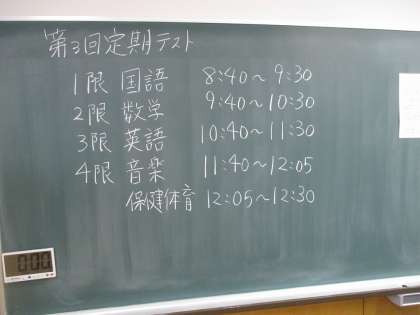 第3回定期テスト
1限 国語 8:40～9:30
2限 数学 9:40～10:30
3限 英語 10:40～11:30
4限 音楽 11:40～12:05
保健体育 12:05～12:30
0:00